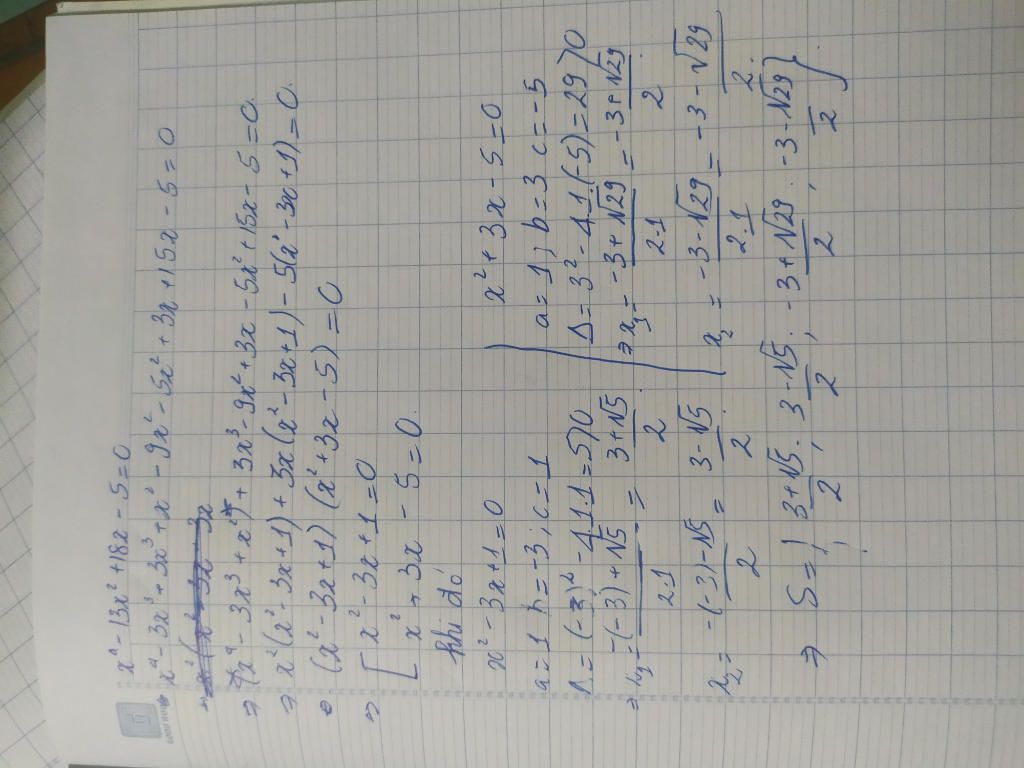 x⁴ - 13x² + 18x - 5 = 0
⇒ x⁴ - 3x³ + 3x³ + x² - 9x² - 5x² + 3x + 15x - 5 = 0
⇒ (x⁴ - 3x³ + x²) + 3x³ - 9x² + 3x - 5x² + 15x - 5 = 0.
⇒ x²(x² - 3x + 1) + 3x(x² - 3x + 1) - 5(x² - 3x + 1) = 0.
(x² - 3x + 1) (x² + 3x - 5) = 0
⇒ [ x² - 3x + 1 = 0
x² + 3x - 5 = 0.
Khi đó
x² - 3x + 1 = 0
a = 1 b = -3; c = 1
Δ = (-3)² - 4.1.1 = 5 > 0
⇒ x₁ = -(-3) + √5 / 2.1 = 3 + √5 / 2
x₂ = -(-3) - √5 / 2 = 3 - √5 / 2
x² + 3x - 5 = 0
a = 1, b = 3 c = -5
Δ = 3² - 4.1.(-5) = 29 > 0
⇒ x₃ = -3 + √29 / 2.1 = -3 + √29 / 2
x₂ = -3 - √29 / 2.1 = -3 - √29 / 2.
⇒ S = { 3 + √5 / 2 ; 3 - √5 / 2 ; -3 + √29 / 2 ; -3 - √29 / 2 }